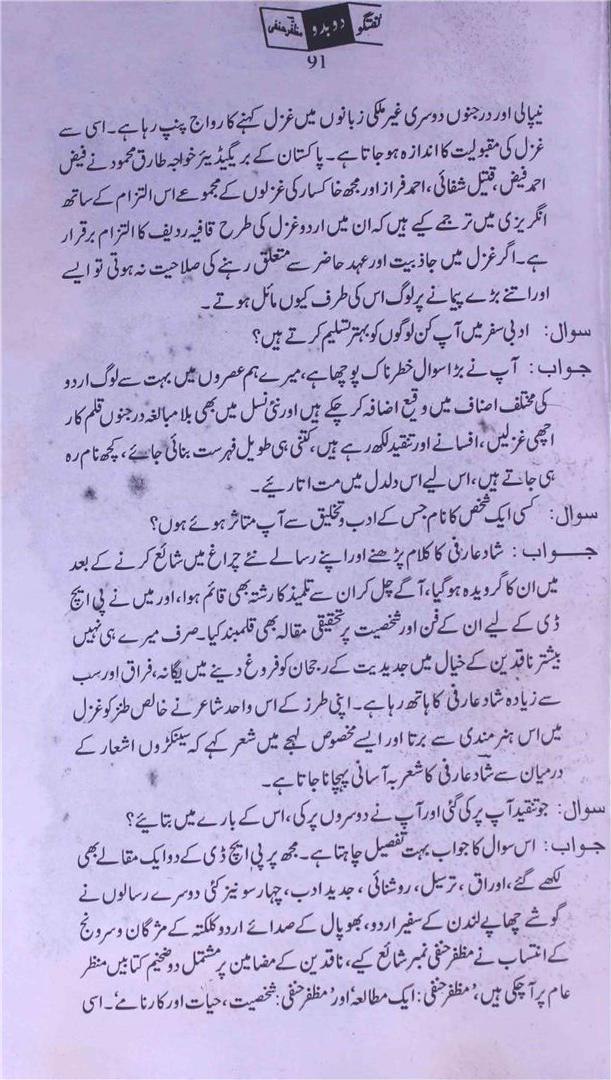 گفتگو دوبدو مظفر حنفی
91
نیپالی اور درجنوں دوسری غیر ملکی زبانوں میں غزل کہنے کا رواج پنپ رہا ہے۔ اسی سے
غزل کی مقبولیت کا اندازہ ہو جاتا ہے۔ پاکستان کے بریگیڈیئر خواجہ طارق محمود نے فیض
احمد فیض، قتیل شفائی، احمد فراز اور مجھ خاکسار کی غزلوں کے مجموعے اس التزام کے ساتھ
انگریزی میں ترجمے کیے ہیں کہ ان میں اردو غزل کی طرح قافیہ ردیف کا التزام برقرار
ہے۔ اگر غزل میں جاذبیت اور عہد حاضر سے متعلق رہنے کی صلاحیت نہ ہوتی تو ایسے
اور اتنے بڑے پیمانے پر لوگ اس کی طرف کیوں مائل ہوتے۔
سوال: ادبی سفر میں آپ کن لوگوں کو بہتر تسلیم کرتے ہیں؟
جواب: آپ نے بڑا سوال خطرناک پوچھا ہے، میرے ہم عصروں میں بہت سے لوگ اردو
کی مختلف اصناف میں وقیع اضافہ کر چکے ہیں اور نئی نسل میں بھی بلا مبالغہ درجنوں قلم کار
اچھی غزلیں، افسانے اور تنقید لکھ رہے ہیں، کتنی ہی طویل فہرست بنائی جائے، کچھ نام رہ
ہی جاتے ہیں، اس لیے اس دلدل میں مت اتاریئے۔
سوال: کسی ایک شخص کا نام جس کے ادب و تخلیق سے آپ متاثر ہوئے ہوں؟
جواب: شاد عارفی کا کلام پڑھنے اور اپنے رسالے نئے چراغ میں شائع کرنے کے بعد
میں ان کا گرویدہ ہو گیا، آگے چل کر ان سے تلمیذ کا رشتہ بھی قائم ہوا، اور میں نے پی ایچ
ڈی کے لیے ان کے فن اور شخصیت پر تحقیقی مقالہ بھی قلمبند کیا۔ صرف میرے ہی نہیں
بیشتر ناقدین کے خیال میں جدیدیت کے رجحان کو فروغ دینے میں یگانہ، فراق اور سب
سے زیادہ شاد عارفی کا ہاتھ رہا ہے۔ اپنی طرز کے اس واحد شاعر نے خالص طنز کو غزل
میں اس ہنر مندی سے برتا اور ایسے مخصوص لہجے میں شعر کہے کہ سینکڑوں اشعار کے
درمیان سے شاد عارفی کا شعر بہ آسانی پہچانا جاتا ہے۔
سوال: جو تنقید آپ پر کی گئی اور آپ نے دوسروں پر کی، اس کے بارے میں بتائیے؟
جواب: اس سوال کا جواب بہت تفصیل چاہتا ہے۔ مجھ پر پی ایچ ڈی کے دو ایک مقالے بھی
لکھے گئے، اوراق، ترسیل، روشنائی، جدید ادب، چہار سو نیز کئی دوسرے رسالوں نے
گوشے چھاپے لندن کے سفیر اردو، بھوپال کے صدائے اردو کلکتہ کے مژگان و سرونج
کے انتساب نے مظفر حنفی نمبر شائع کیے، ناقدین کے مضامین پر مشتمل دو ضخیم کتابیں منظر
عام پر آ چکی ہیں، 'مظفر حنفی: ایک مطالعہ' اور 'مظفر حنفی: شخصیت، حیات اور کارنامے'۔ اسی